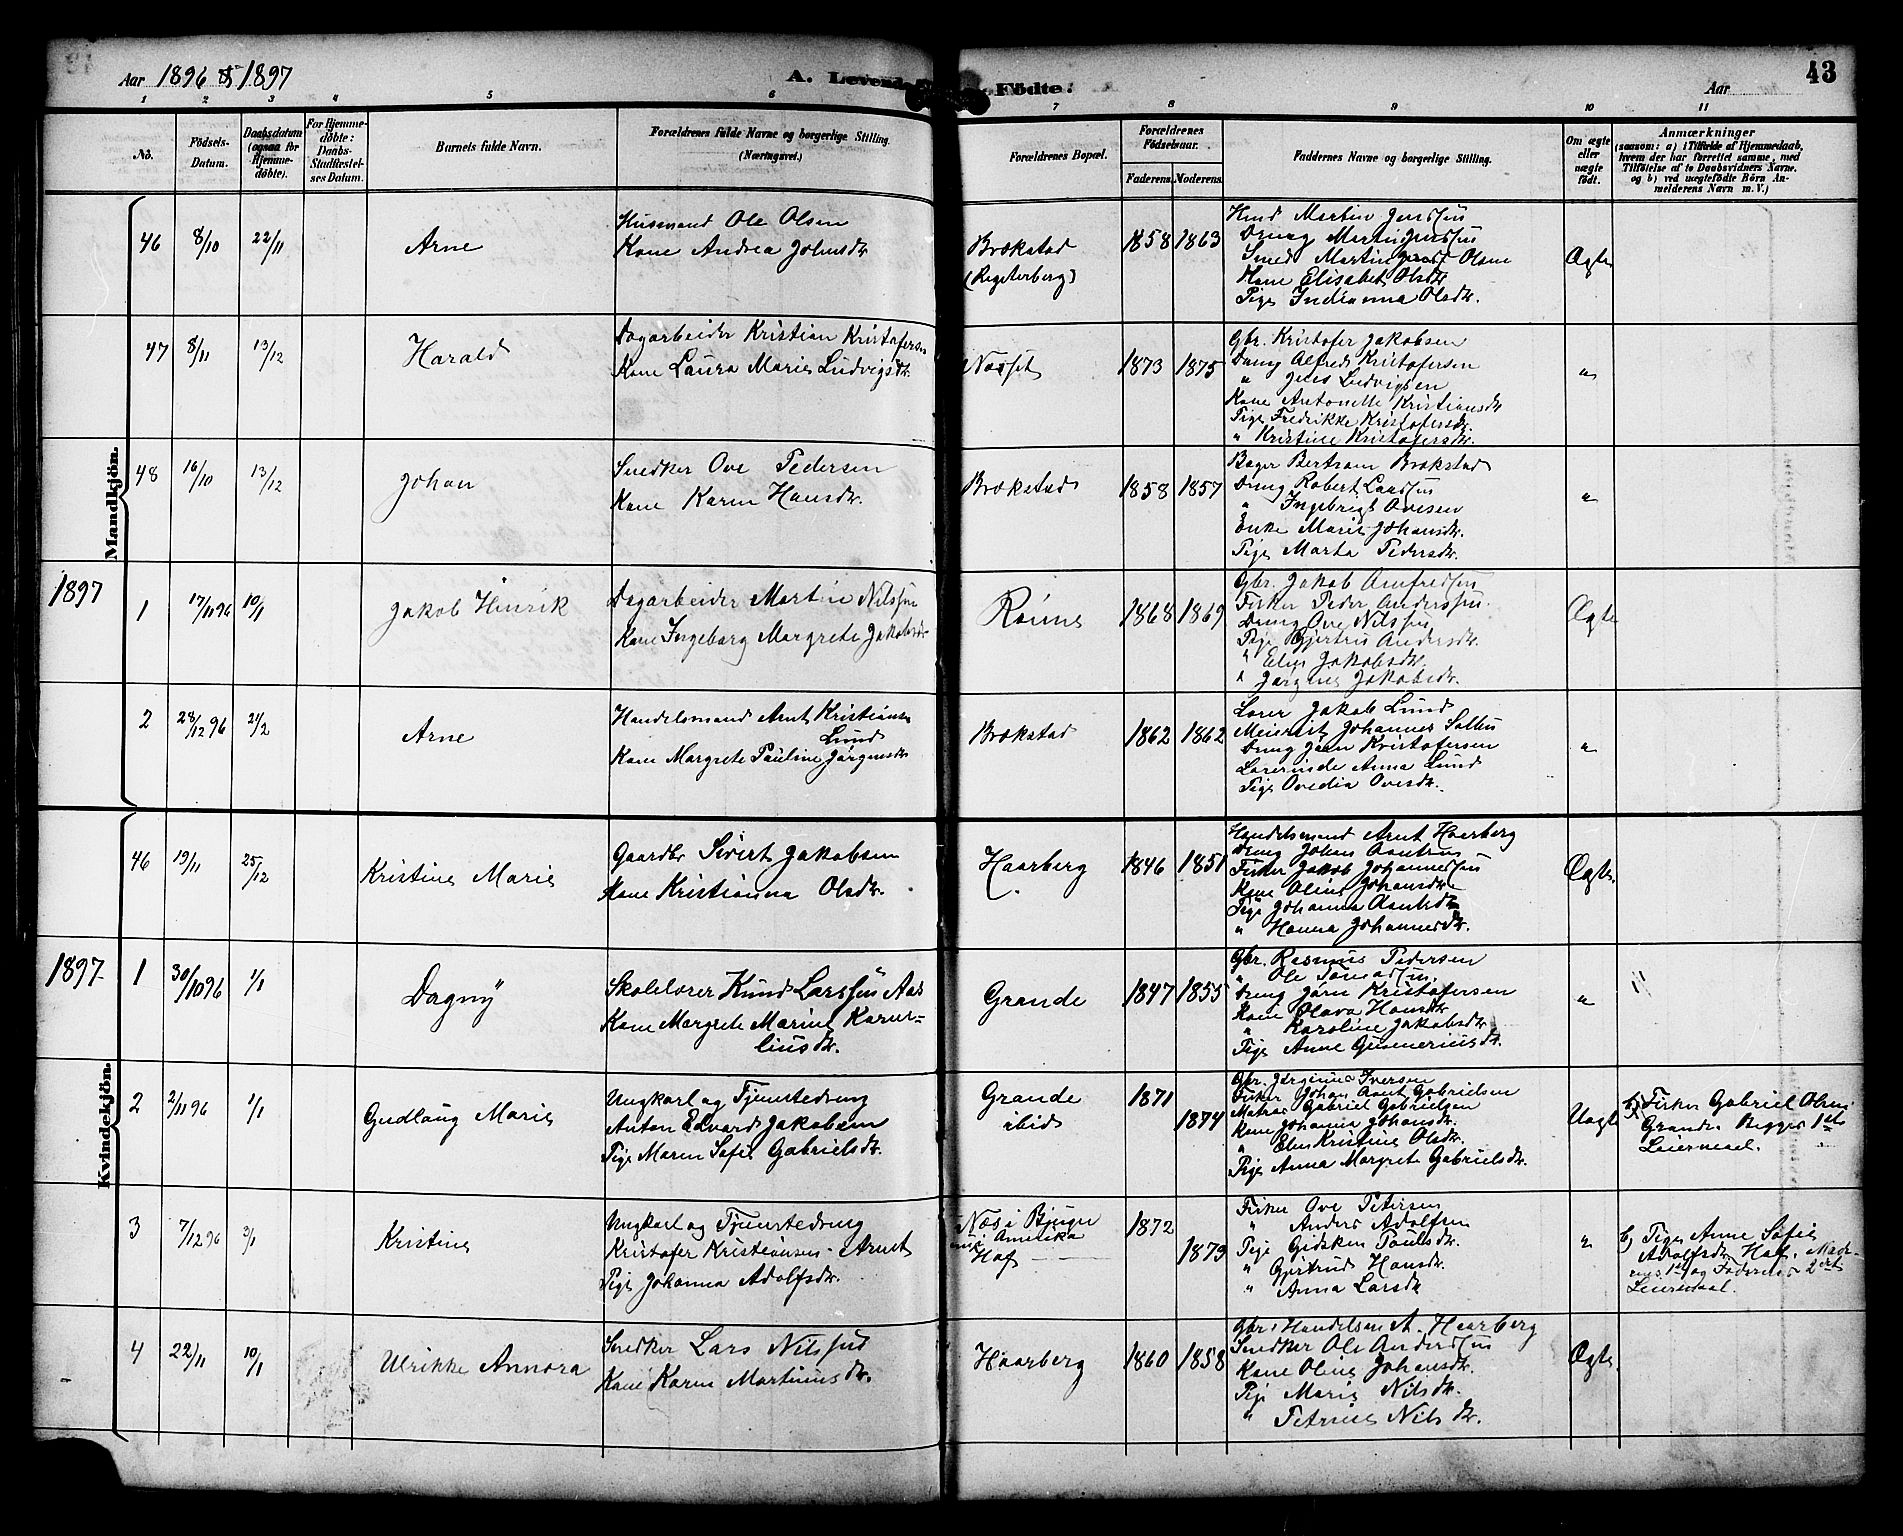 Aar 1896 & 1897
A. Levende Födte.
Aar
43
1 2 3 4 5 6 7 8 9 10 11
No.
Födsels-Datum.
Daabsdatum (ogsaa for Hjemme-døbte).
For Hjemme-døbte: Daabs-Stadfæstel-ses Datum.
Barnets fulde Navn.
Forældrenes fulde Navne og borgerlige Stilling. (Næringsvei.)
Forældrenes Bopæl.
Forældrenes Födselsaar.
Faderens. Moderens.
Faddernes Navne og borgerlige Stilling.
Om ægte eller uægte født.
Anmærkninger
(saasom: a) i Tilfælde af Hjemmedaab, hvem der har forrettet samme, med Tilføielse af to Daabsvidners Navne, og b) ved uægtefødte Børn Anmelderens Navn m. V.)
Mandkjön.
46 8/10 22/11 Arne
Husmand Ole Olsen
Kone Andrea Johnsdr.
Brækstad
1858 1863
Husmd Martin Jenssen
Dreng Martin Jenssen
Smed Martin Olsen
Kone Elisabet Olsdr.
Pige Indianna Olsdr.
Ægte
47 8/11 13/12 Harald
Dagarbeider Kristian Kristofersen
Kone Laura Marie Ludvigsdr.
Næsset
1873 1875
Gbr. Kristofer Jakobsen
Dreng Alfred Kristofersen
" Jens Ludvigsen
Kone Antonette Kristiansdr
Pige Fredrikke Kristofersdr.
" Kristine Kristofersdr.
"
48 16/10 13/12 Johan
Snedker Ove Pedersen
Kone Karen Hansdr.
Brækstad
1858 1857
Bager Bertram Brækstad
Dreng Robert Larssen
" Ingebrigt Ovesen
Enke Marie Johansdr.
Pige Marta Pedersdr.
"
1897
1 17/11 96 10/1 Jakob Henrik
Dagarbeider Martin Nilssen
Kone Ingeborg Margrete Jakobsdr
Rønne
1868 1869
Gbr. Jakob Arnfredsen
Fisker Peder Anderssen.
Dreng Ove Nilssen
Pige Gjertru Andersdr.
" Elen Jakobsdr.
" Jørgine Jakobsdr.
Ægte
2 28/12 96 21/2 Arne
Handelsmand Arnt Kristiansen
Lund
Kone Margrete Pauline Jørgensdr
Brækstad
1862 1862
Lærer Jakob Lund
Meierist Johannes Solbu
Dreng Jørn Kristofersen
Lærerinde Anna Lund
Pige Ovedia Ovesdr.
"
Kvindekjön.
46 19/11 25/12 Kristine Marie
Gaardbr Sivert Jakobsen
Kone Kristianna Olsdr.
Haarberg
1846 1851
Handelsmand Arnt Haarberg
Dreng Johan Arntsen
Fisker Jakob Johannessen
Kone Oline Johansdr.
Pige Johanna Arntsdr
" Hanna Johannesdr.
Ægte.
1897.
1 30/10 96 1/1 Dagny
Skolelærer Knud Larssen Aas
Kone Margrete Marine Karne-
liusdr.
Grande
1847 1855
Gbr. Rasmus Pedersen
" Ole
Dreng Jørn Kristofersen
Kone Olava Hansdr
" Karoline Jakobsdr
Pige Anne Gunneriusdr.
"
2 2/11 96 1/1 Gudlaug Marie
Ungkarl og Tjenestedreng
Anton Edvard Jakobsen
Pige Maren Sofie Gabrielsdr.
Grande
ibid
1871
1874
Gbr. Jørginus Iversen
Fisker Johan Arnt Gabrielsen
Matros Gabriel Gabrielsen
Kone Johanna Johansdr.
" Elen Kristine Olsdr.
Pige Anna Margrete Gabrielsdr.
Uægte
b) Fisker Gabriel Olsen
Grande. Begges 1ste
Leiermaal.
3 7/12 96 3/1 Kristine
Ungkarl og Tjenestedreng
Kristofer Kristiansen Arnet
Pige Johanna Adolfsdr.
Næs i Bjugn
nu i Amerika
Hof
1872
1879
Fisker Ove Petersen
" Anders Adolfsen
Pige Gidsken Paulsdr.
" Gjertrud Hansdr.
" Anna Larsdr
"
b) Pige Anne Sofie
Adolfsdr Hof. Mode-
rens 1ste og Faderens 2det
Leiermaal.
4 22/11 10/1 Ulrikke Annora
Snedker Lars Nilssen
Kone Karen Martinusdr.
Haarberg
1860 1858
Gbr. Handelsm A. Haarberg
Snedker Ole Anderssen
Kone Oline Johansdr.
Pige Marie Nilsdr.
" Petrine Nilsdr.
Ægte.